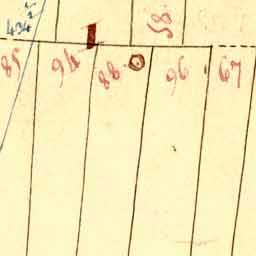 434
58
85
94
88
96
67